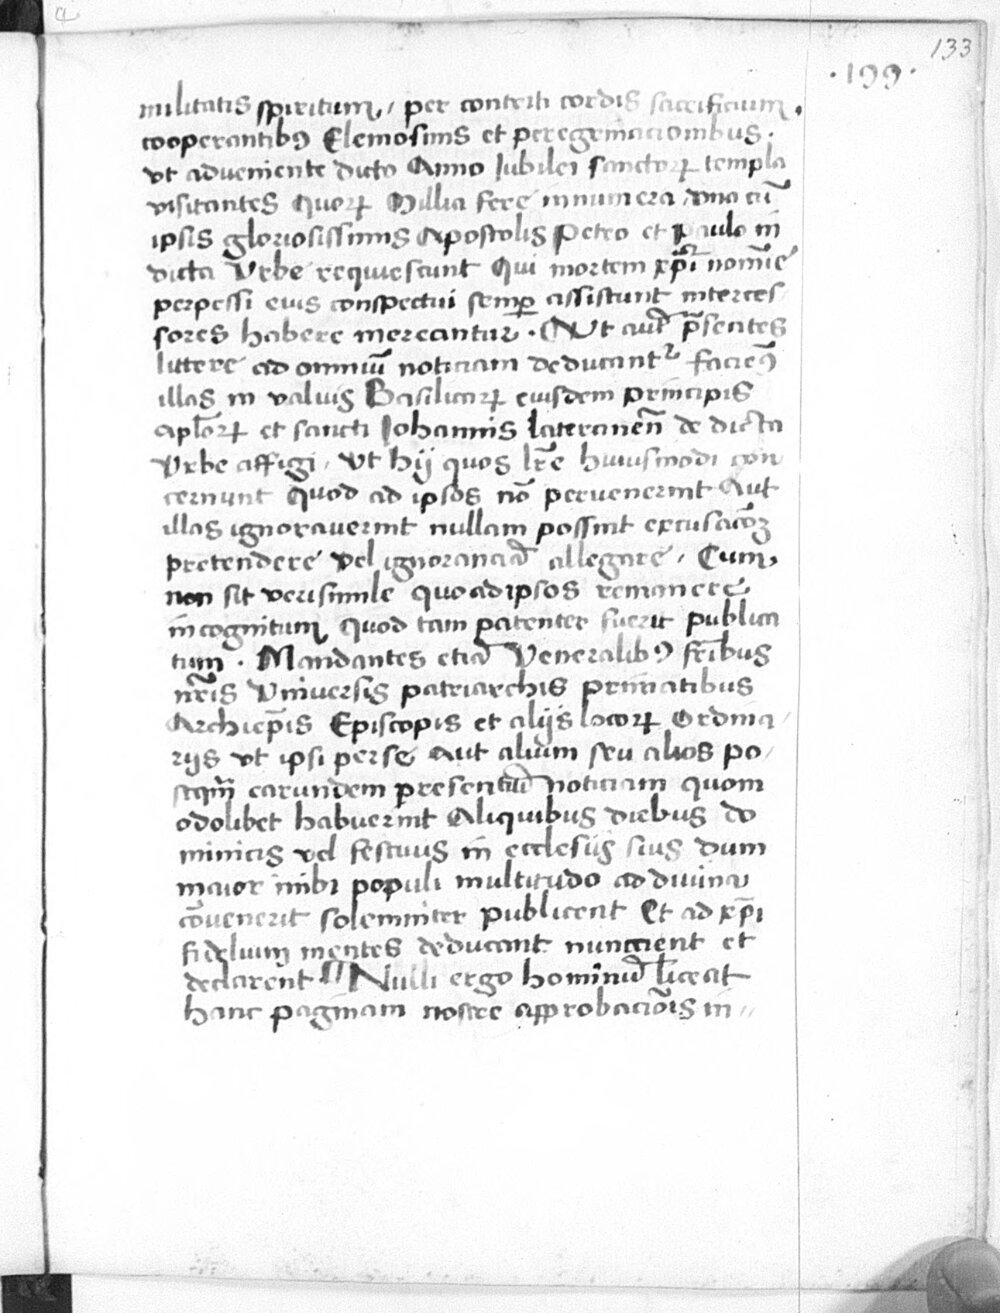 133
·199·
militatis spiritum, per contriti cordis sacrificium.
cooperantibꝰ Elemosinis et peregrinacionibus.
vt adueniente dicto Anno Iubilei sanctoꝝ templa
visitantes Quoꝝ Millia fere innumera, vna cū
ipsis gloriosissimis Apostolis Petro et Paulo in
dicta Vrbe requiescunt Qui mortem xp̄i nomīe
perpessi eius conspectui semp̱ assistunt interces
sores habere mereantur. Ut aūt p̄sentes
littere ad omniū noticiam deducantr faciēꝰ
illas in valuis Basilicaꝝ eiusdem principis
apl̄oꝝ et sancti Iohannis lateranen̄ de dicta
Vrbe affigi, Vt hij quos lr̄e huiusmodi con
cernunt quod ad ipsos nō peruenerint Aut
illas ignorauerint nullam possint excusacōȝ
pretendere vel ignoranciā allegare, Cum,
non sit verisimile quoadipsos remanere
incognitum quod tam patenter fuerit publica
tum. Mandantes etiā Veneralibꝰ fr̄ibus
nr̄is Vniuersis patriarchis primatibus
Archiep̄is Episcopis et alijs locoꝝ Ordina/
rijs vt ipsi perse Aut alium seu alios po/
stqm̄ earundem presentiū noticiam quom
odolibet habuerint Aliquibus diebus do
minicis vel festiuis in ecclesijs suis dum
maior inibi populi multitudo ad diuina
cōuenerit solemniter publicent Et ad xp̄i
fidelium mentes deducant nuncient et
declarent ¶ Nulli ergo hominū liceat
hanc paginam nostre approbaciōis in//